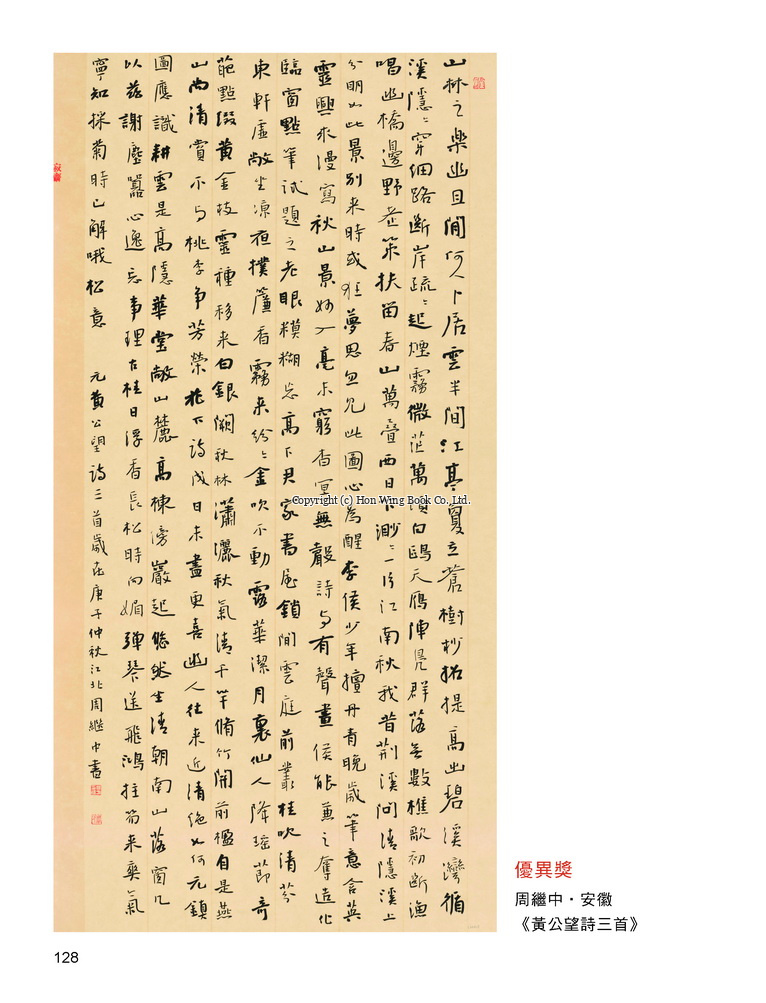 山林之樂幽且閒何人卜居雲半間江亭夏立蒼樹杪招提高出碧溪灣循
溪隱隱穿細路斷岸疏疏起煙霧微茫萬頃白鷗天雁陣晃群落無數樵歌初斷漁
唱幽橋邊野老策扶留春山萬疊西日下渺渺一片江南秋我昔荆溪問清隱溪上
分明如此景別來時或狂夢思忽見此圖心為醒李侯少年擅丹青晚歲筆意含英
靈興來漫寫秋山景妙入毫末窮杳冥無聲詩與有聲畫侯能兼之奪造化
臨窗點筆試題之老眼模糊忘高下君家書屋鎖閒雲庭前叢桂吹清芬
東軒虛敞坐凉夜撲簾香霧來紛紛金吹不動露華潔月裏仙人降瑤節奇
葩點綴黃金枝靈種移來白銀闕秋林瀟灑秋氣清千竿脩竹開前楹自是燕
山尚清賞不與桃李爭芳榮花下詩成日未盡更喜幽人往來近清絕如何元鎮
圖應識耕雲是高隱華堂敞山麓高棟傍巖起悠然坐清朝南山落窗几
以茲謝塵囂心逸忘事理古桂日浮香長松時向媚彈琴送飛鴻拄笏來爽氣
寧知採菊時已解哦松意 元黃公望詩三首歲在庚子仲秋江北周繼中書
Copyright (c) Hon Wing Book Co., Ltd.
優異獎
周繼中・安徽
《黃公望詩三首》
128